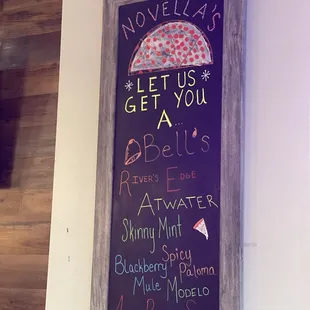 NOVELLA'S
*LET US*
GET YOU
A...
Bell's
RIVER'S EDGE
ATWATER
Skinny Mint
Blackberry
Mule
Spicy
Paloma
MODELO